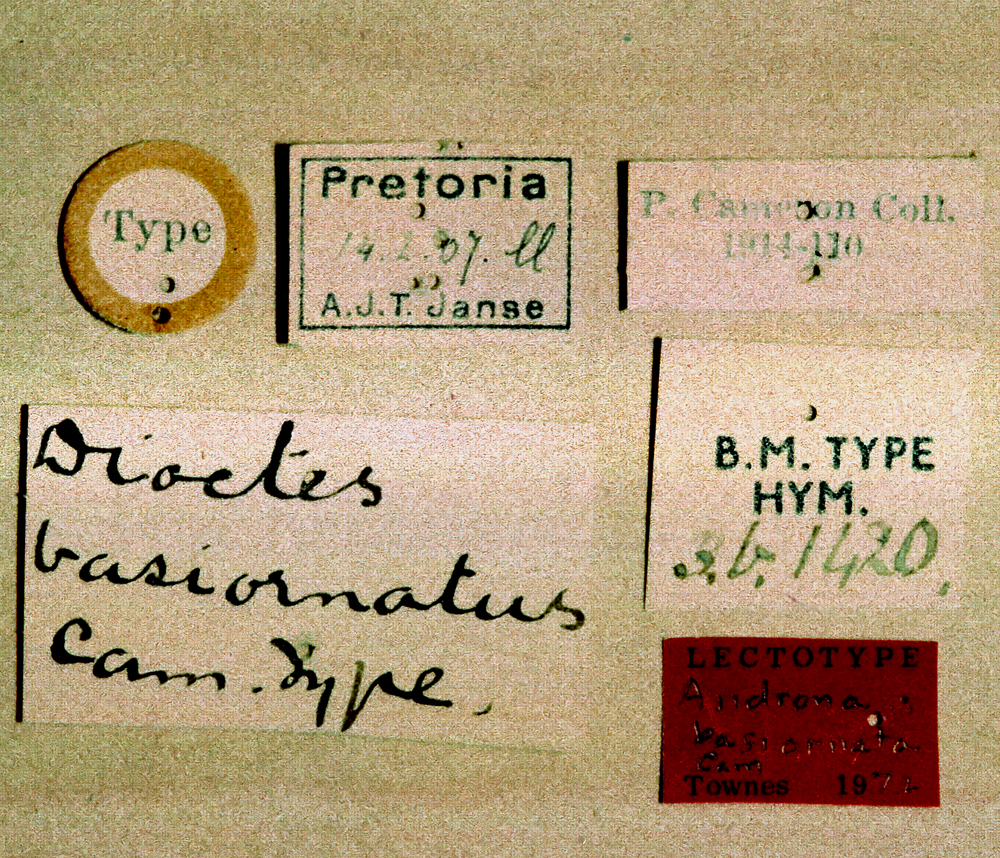 Type
Pretoria
14.2.07. ll
A.J.T. Janse
P. Cameron Coll.
1914-110
B.M. TYPE
HYM.
3.b.1420.
Dioctes
basiornatus
Cam. Type.
LECTOTYPE
basiornata
Cam
Townes 1972